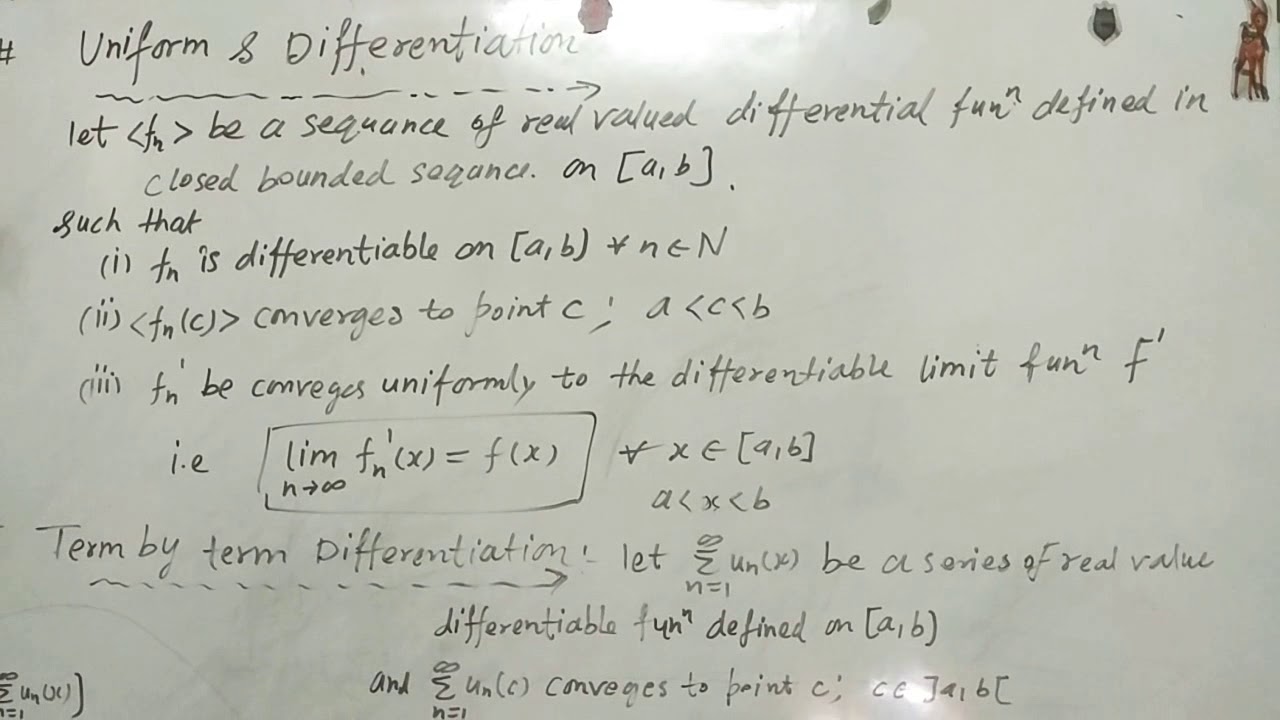 # Uniform & Differentiation
let <fn> be a sequance of real valued differential funⁿ defined in
closed bounded seqance. on [a,b].
such that
(i) fn is differentiable on [a,b) ∀ n ∈ N
(ii) <fn(c)> converges to point c; a<c<b
(iii) fn' be conveges uniformly to the differentiable limit funⁿ f'
i.e lim n→∞ fn'(x) = f(x) ∀ x ∈ [a,b]
a<x<b
Term by term Differentiation: let ∞ Σ n=1 un(x) be a series of real value
differentiable funⁿ defined on [a,b)
and ∞ Σ n=1 un(c) conveges to point c; c∈ ]a,b[
∞ Σ n=1 un(x)]